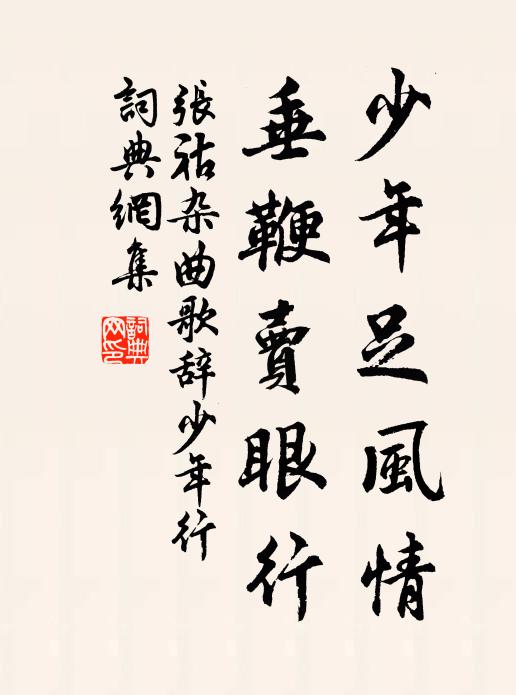 少年足風情
垂鞭賣眼行
張祜杂曲歌辞少年行
詞典網集
詞典
网印